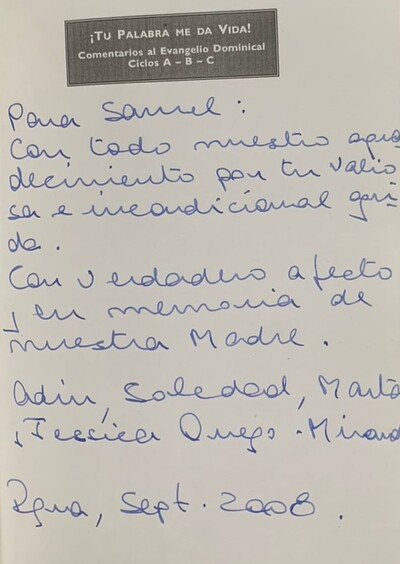 ¡TU PALABRA ME DA VIDA!
Comentarios al Evangelio Dominical
Ciclos A – B – C
Para Samuel:
Con todo nuestro agra
decimiento por tu valio
sa e incondicional
da.
Con verdadero afecto
y en memoria de
nuestra Madre.
Soledad, Marta
y Jessica
Sept. 2008.